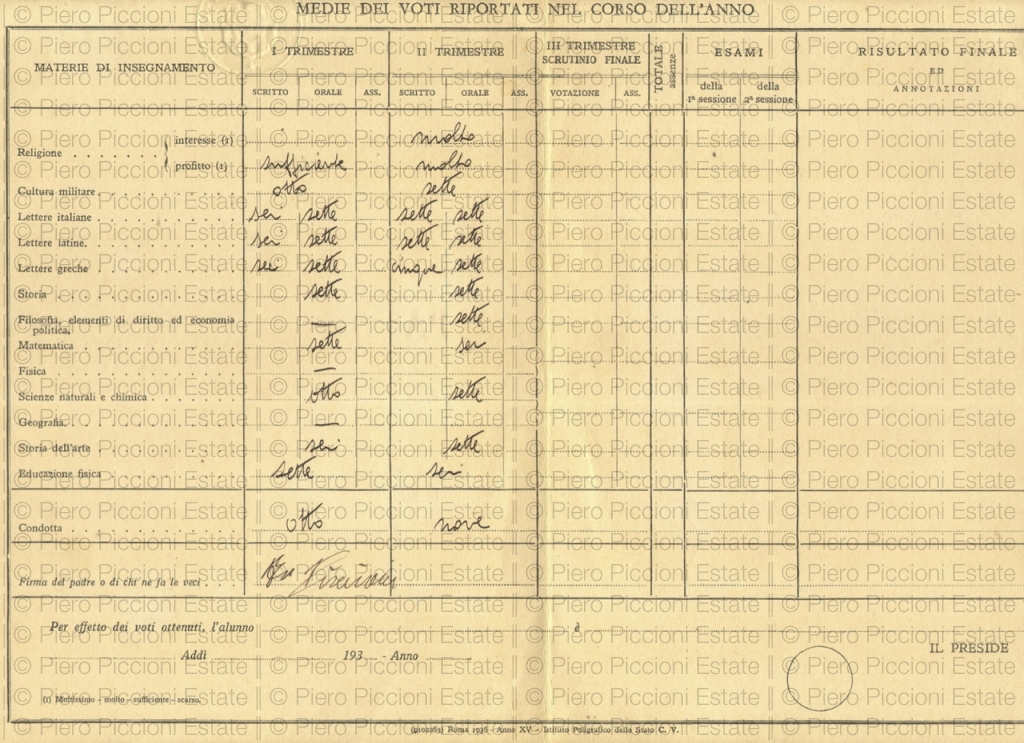 MEDIE DEI VOTI RIPORTATI NEL CORSO DELL'ANNO
MATERIE DI INSEGNAMENTO
I TRIMESTRE
II TRIMESTRE
III TRIMESTRE
SCRUTINIO FINALE
TOTALE
assenze
ESAMI
RISULTATO FINALE
ED
ANNOTAZIONI
SCRITTO ORALE ASS. SCRITTO ORALE ASS. VOTAZIONE ASS.
della 1ª sessione
della 2ª sessione
Religione
interesse (1) molto
profitto (1) sufficiente molto
Cultura militare otto sette
Lettere italiane sei sette sette sette
Lettere latine. sei sette sette sette
Lettere greche sei sette cinque sette
Storia sette sette
Filosofia, elementi di diritto ed economia politica. — sette
Matematica sette sei
Fisica —
Scienze naturali e chimica otto sette
Geografia. —
Storia dell'arte sei sette
Educazione fisica sette sei
Condotta otto nove
Firma del padre o di chi ne fa le veci Piccioni
Per effetto dei voti ottenuti, l'alunno è
Addì 193 - Anno
IL PRESIDE
(1) Moltissimo - molto - sufficiente - scarso.
(9102263) Roma 1936 - Anno XV - Istituto Poligrafico dello Stato C. V.
© Piero Piccioni Estate